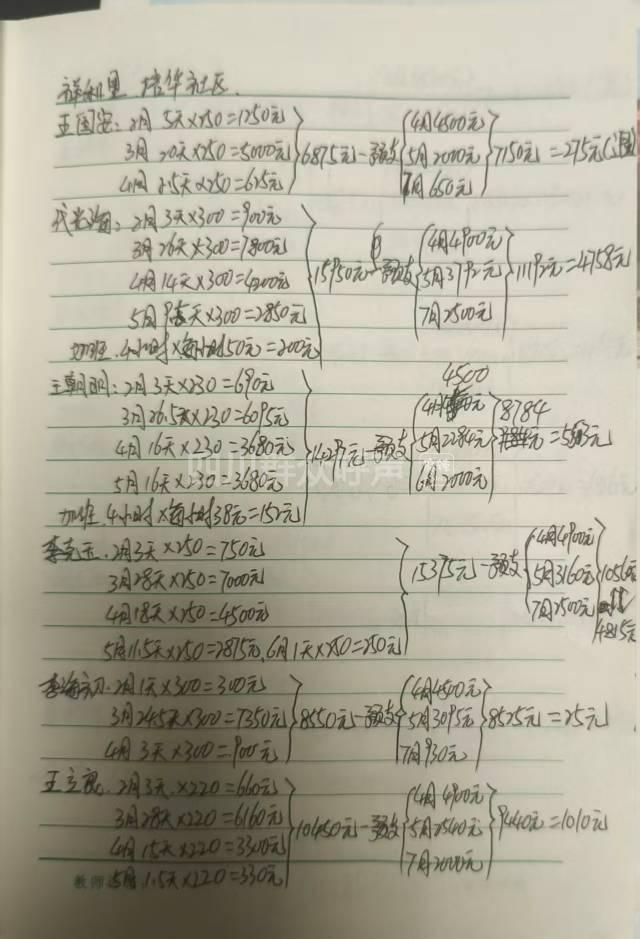 祥和里 培华社区.
王国安: 2月 5天×250=1250元
3月 20天×250=5000元 6875元-预支 4月4500元 5月2000元 7月650元 7150元=275元
4月 2.5天×250=625元
2月 3天×300=900元
3月26天×300=7800元
4月14天×300=4200元 15950元-预支 4月4900元 5月3792元 7月2500元 11192元=4758元
5月9.5天×300=2850元
加班.4小时×每小时50元=200元
王朝明: 2月3天×230=690元
3月26.5天×230=6095元
4月16天×230=3680元 14297元-预支 4500 5月2284元 6月2000元 8784
5月16天×230=3680元
加班 4小时×每小时38元=152元
李克玉. 2月3天×250=750元
3月28天×250=7000元 15375元-预支 4月4900元 5月3160元 7月2500元 4815元
4月18天×250=4500元
5月11.5天×250=2875元, 6月1天×250=250元
2月1天×300=300元
3月24.5天×300=7350元 8550元-预支 4月4500元 5月3095元 7月930元 8525元=25元
4月3天×300=900元
2月3天.×220=660元
3月28天×220=6160元 10450元-预支 4月4900元 5月2540元 7月2000元 9440元=1010元
4月15天×220=3300元
教师 5月1.5天×220=330元